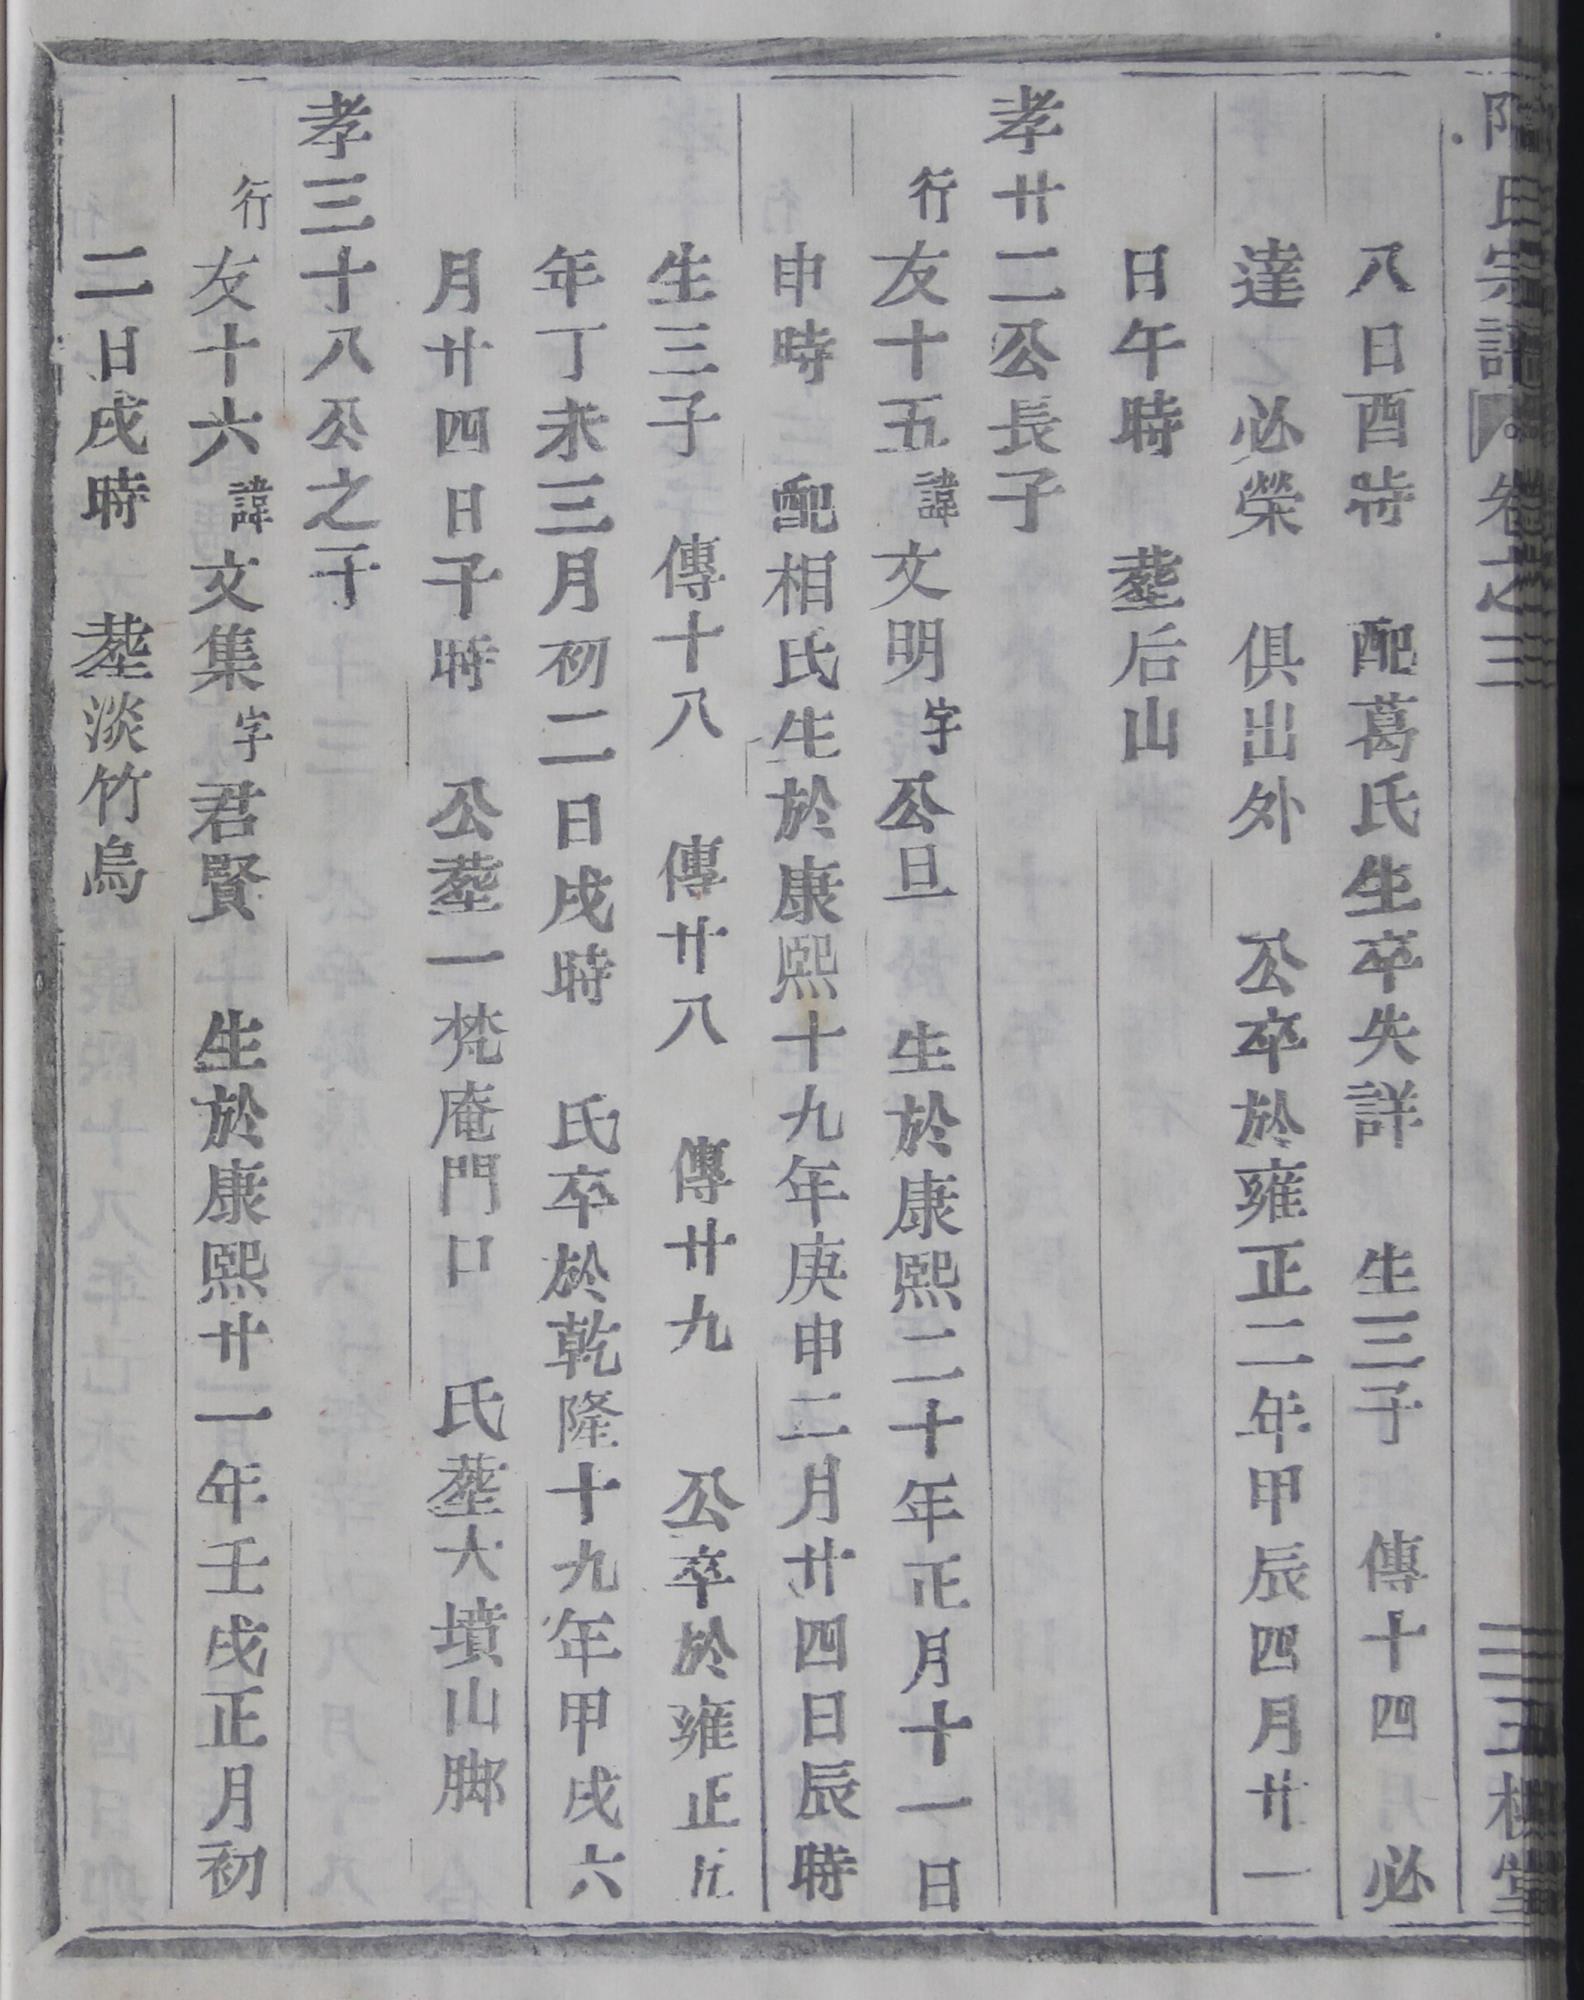 氏宗譜 卷之三 堂
八日酉時 配葛氏生卒失詳 生三子 傳十四 必
達 必榮 俱出外 公卒於雍正二年甲辰四月廿一
日午時 塟后山
孝廿二公長子
行友十五諱文明字公旦 生於康熙二十年正月十一日
申時 配相氏生於康熙十九年庚申二月廿四日辰時
生三子 傳十八 傳廿八 傳廿九 公卒於雍正五
年丁未三月初二日戌時 氏卒於乾隆十九年甲戌六
月廿四日子時 公塟一梵庵門口 氏塟大墳山脚
孝三十八公之子
行友十六諱文集字君賢 生於康熙廿一年壬戌正月初
二日戌時 塟淡竹烏